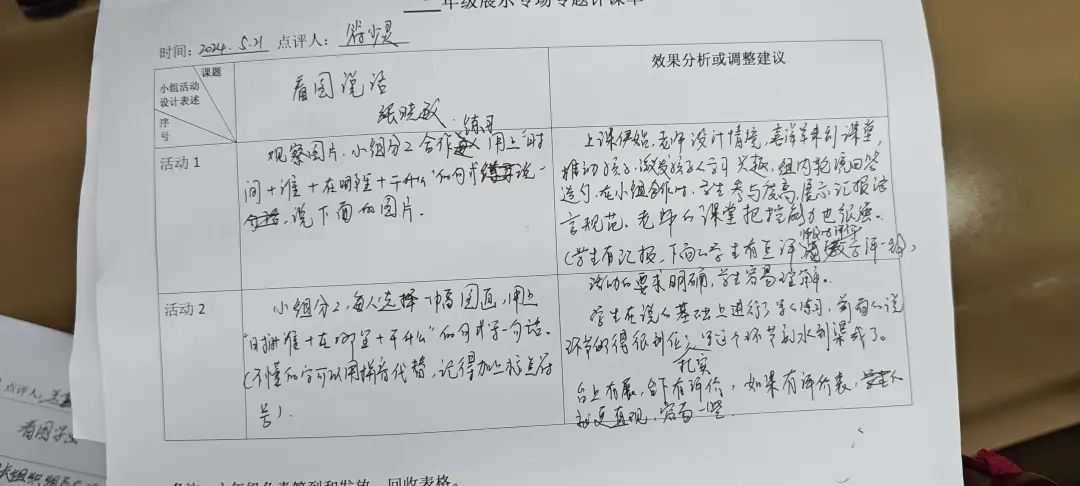 年级展示专场专题评课单
时间：2024.5.21 点评人：
课题
小组活动
设计表述
序
号
看图说话
张晓敏
效果分析或调整建议
活动 1
练习
观察图片，小组分工合作 用上“时
间+谁+在哪里+干什么”的句式 说一
说下面的图片。
上课伊始，老师设计情境，喜洋羊来到课堂，
推动孩子，激发孩子们学习兴趣，组内轮流回答
造句，在小组合作时，学生参与度高，展示汇报语
言规范。老师的课堂把控能力也很强。
(学生有汇报，下面的学生有点评
活动的要求明确，学生容易理解。
活动 2
小组分工，每人选择一幅图画，用上
“时间+谁+在哪里+干什么”的句式写一句话。
(不懂的字可以用拼音代替，记得加上标点符
号)。
学生在说的基础上进行了写的练习，前面的说
环节做得很到位，写这个环节就水到渠成了。
扎实
台上有展，台下有评价，如果有评价表，
就更直观，容易一些。
点评人：
看图
回收表格。